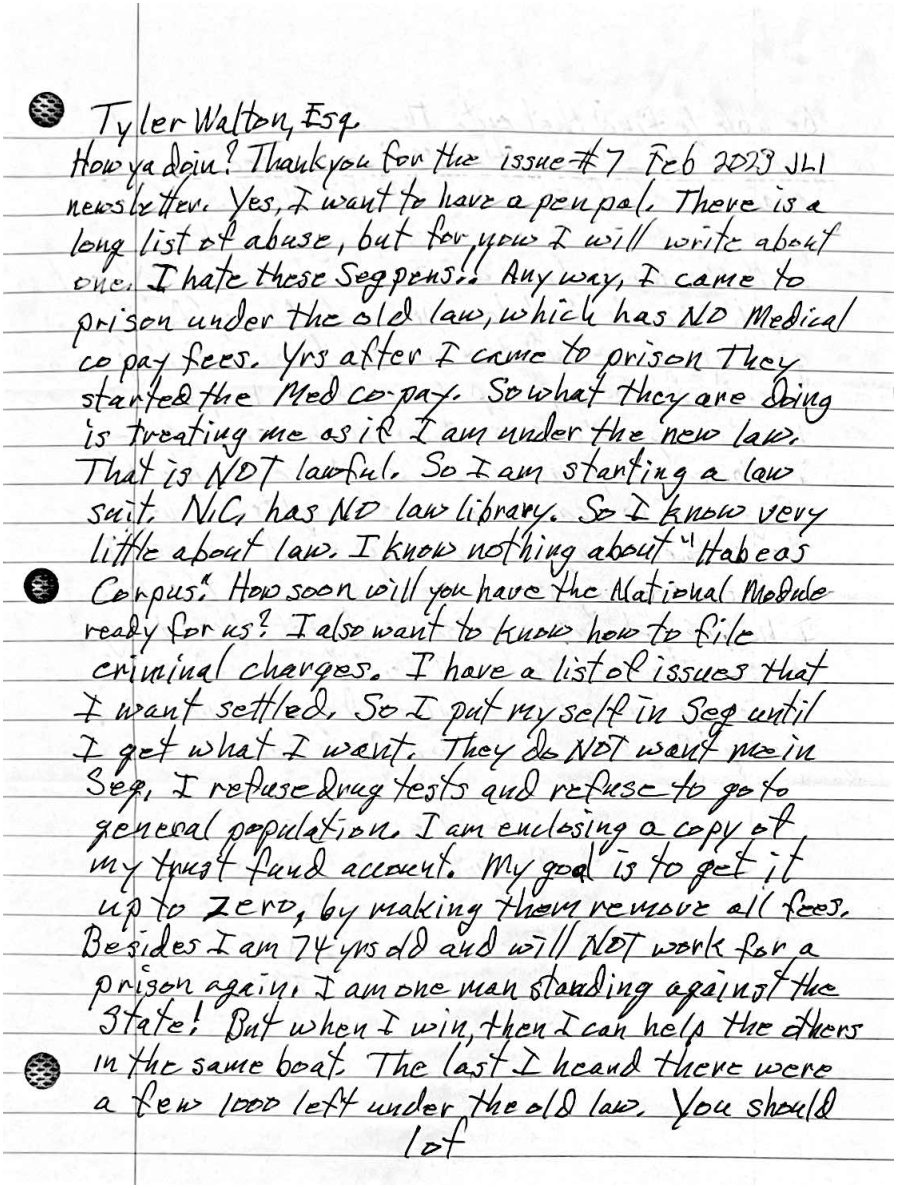 Tyler Walton, Esq.
How ya doin? Thank you for the issue #7 Feb 2023 JLI
newsletter. Yes, I want to have a pen pal. There is a
long list of abuse, but for now I will write about
one. I hate these Seg pens.. Any way, I came to
prison under the old law, which has NO Medical
co pay fees. Yrs after I came to prison They
started the Med co-pay. So what they are doing
is treating me as if I am under the new law.
That is NOT lawful. So I am starting a law
suit. N.C. has NO law library. So I know very
little about law. I know nothing about "Habeas
Corpus". How soon will you have the National Module
ready for us? I also want to know how to file
criminal charges. I have a list of issues that
I want settled. So I put my self in Seg until
I get what I want. They do NOT want me in
Seg. I refuse drug tests and refuse to go to
general population. I am enclosing a copy of
my trust fund account. My goal is to get it
up to zero, by making them remove all fees.
Besides I am 74 yrs old and will NOT work for a
prison again. I am one man standing against the
State! But when I win, then I can help the others
in the same boat. The last I heard there were
a few 1000 left under the old law. You should
1 of